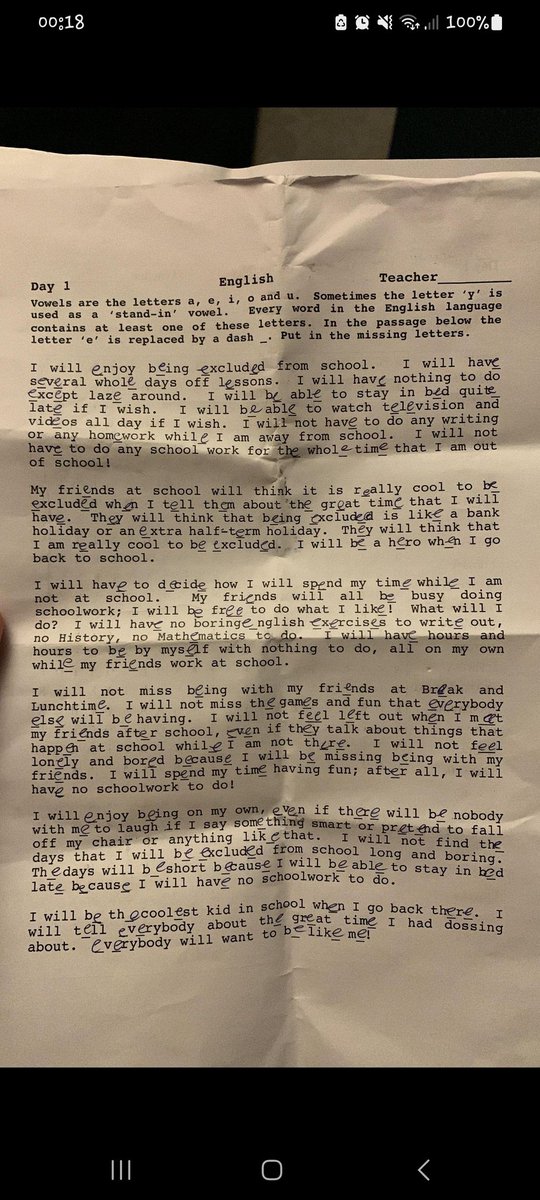 00:18
100%
Day 1 English Teacher________
Vowels are the letters a, e, i, o and u. Sometimes the letter 'y' is
used as a 'stand-in' vowel. Every word in the English language
contains at least one of these letters. In the passage below the
letter 'e' is replaced by a dash _. Put in the missing letters.
I will enjoy being excluded from school. I will have
several whole days off lessons. I will have nothing to do
except laze around. I will be able to stay in bed quite
late if I wish. I will be able to watch television and
videos all day if I wish. I will not have to do any writing
or any homework while I am away from school. I will not
have to do any school work for the whole time that I am out
of school!
My friends at school will think it is really cool to be
excluded when I tell them about the great time that I will
have. They will think that being excluded is like a bank
holiday or an extra half-term holiday. They will think that
I am really cool to be excluded. I will be a hero when I go
back to school.
I will have to decide how I will spend my time while I am
not at school. My friends will all be busy doing
schoolwork; I will be free to do what I like! What will I
do? I will have no boring english exercises to write out,
no History, no Mathematics to do. I will have hours and
hours to be by myself with nothing to do, all on my own
while my friends work at school.
I will not miss being with my friends at Break and
Lunchtime. I will not miss the games and fun that everybody
else will be having. I will not feel left out when I meet
my friends after school, even if they talk about things that
happen at school while I am not there. I will not feel
lonely and bored because I will be missing being with my
friends. I will spend my time having fun; after all, I will
have no schoolwork to do!
I will enjoy being on my own, even if there will be nobody
with me to laugh if I say something smart or pretend to fall
off my chair or anything like that. I will not find the
days that I will be excluded from school long and boring.
The days will be short because I will be able to stay in bed
late because I will have no schoolwork to do.
I will be the coolest kid in school when I go back there. I
will tell everybody about the great time I had dossing
about. everybody will want to be like me!